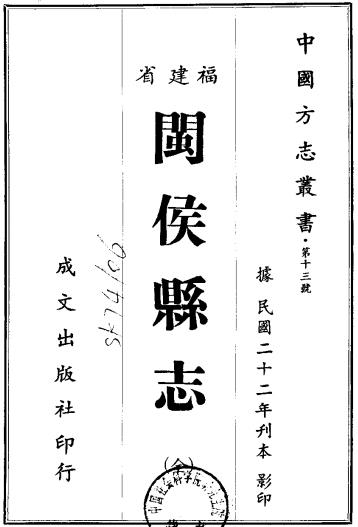 中國方志叢書·第十三號
據民國二十二年刊本影印
福建省
閩侯縣志
(全)
成文出版社印行